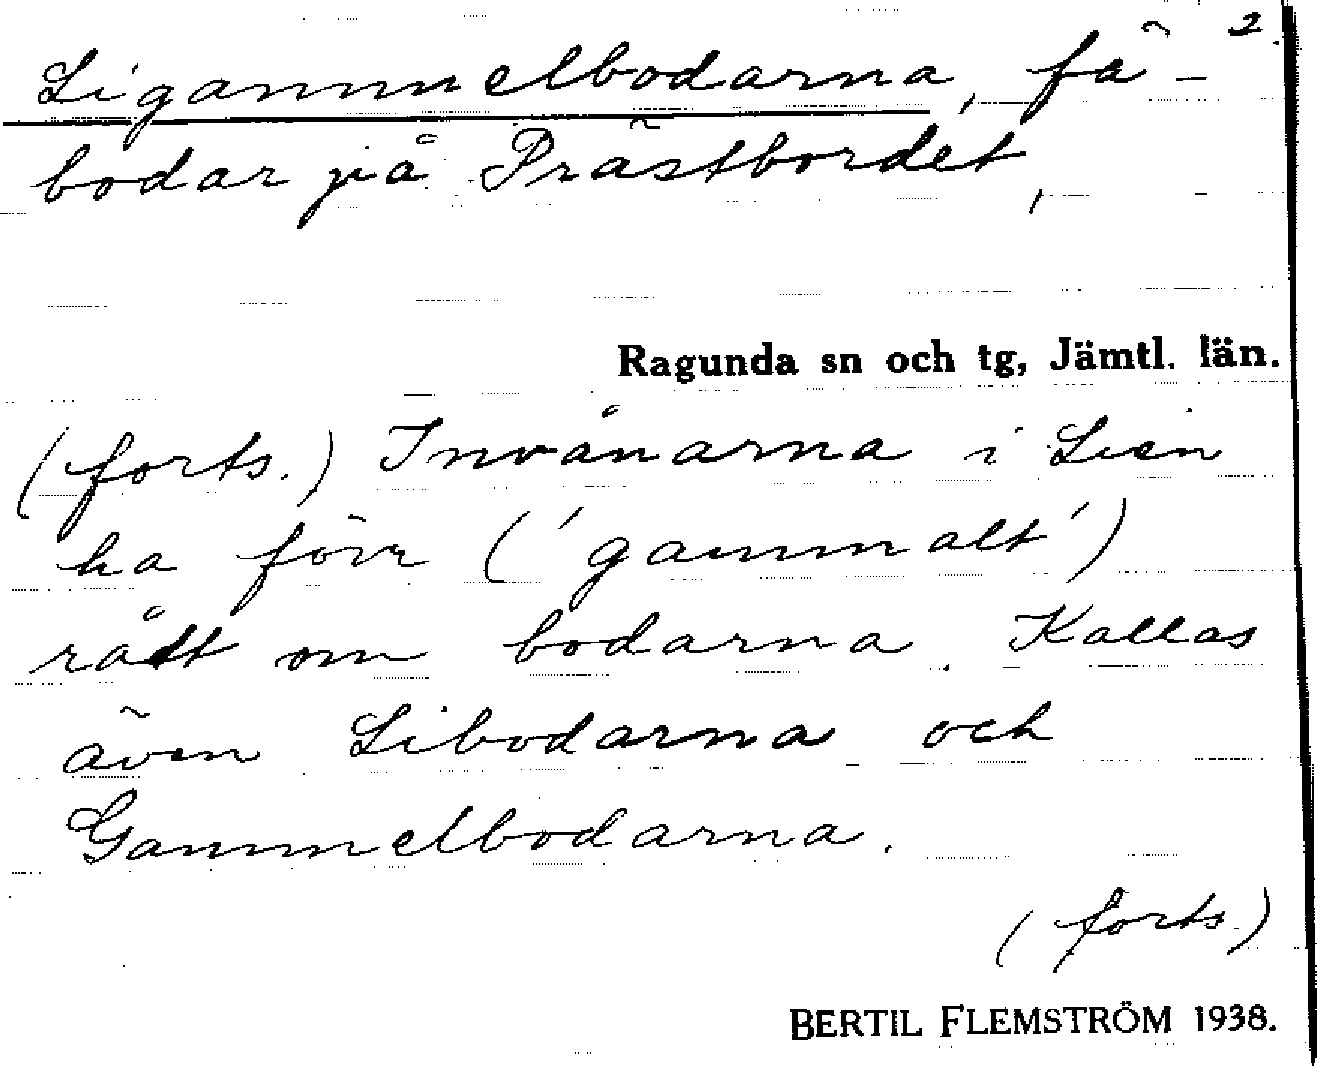 2
Ligammelbodarna, fä-
bodar på Prästbordet,
Ragunda sn och tg, Jämtl. län.
(forts.) Invånarna i Lien
ha förr ('gammalt')
rått om bodarna. Kallas
även Libodarna och
Gammelbodarna.
(forts.)
BERTIL FLEMSTRÖM 1938.